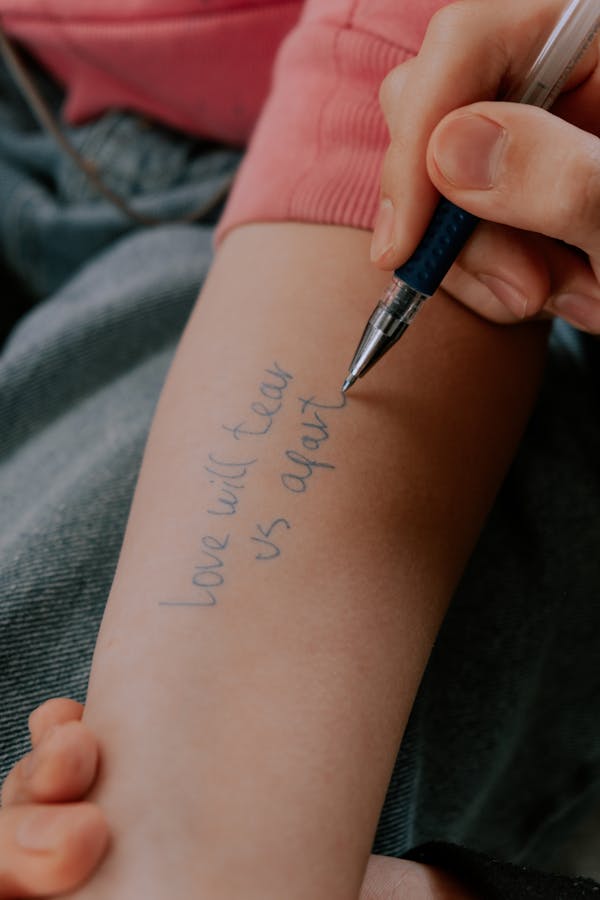 Love will tear
us apart